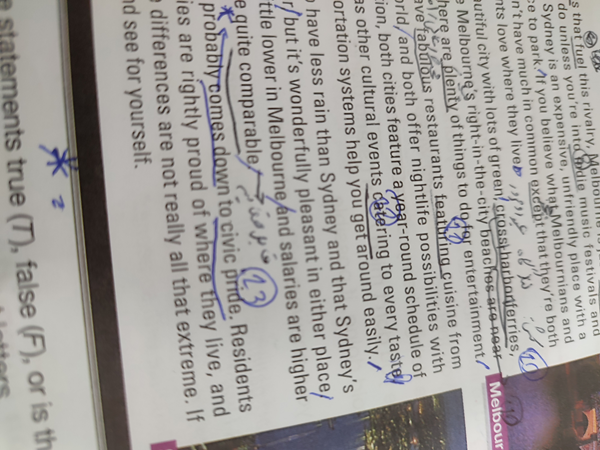 s that fuel this rivalry, Melbourne is
do unless you're into indie music festivals and
Sydney is an expensive, unfriendly place with a
ce to park. If you believe what Melbournians and
n't have much in common except that they're both
nts love where they live.
autiful city with lots of green, cross-harbor ferries,
10
e Melbourne's right-in-the-city beaches are near
here are plenty of things to do for entertainment.
ave fabulous restaurants featuring cuisine from
orld, and both offer nightlife possibilities with
tion, both cities feature a year-round schedule of
as other cultural events, catering to every taste.
ortation systems help you get around easily.
o have less rain than Sydney and that Sydney's
r, but it's wonderfully pleasant in either place.
ttle lower in Melbourne and salaries are higher
e quite comparable.
23
probably comes down to civic pride. Residents
ies are rightly proud of where they live, and
differences are not really all that extreme. If
nd see for yourself.
Melbour
e statements true (T), false (F), or is th